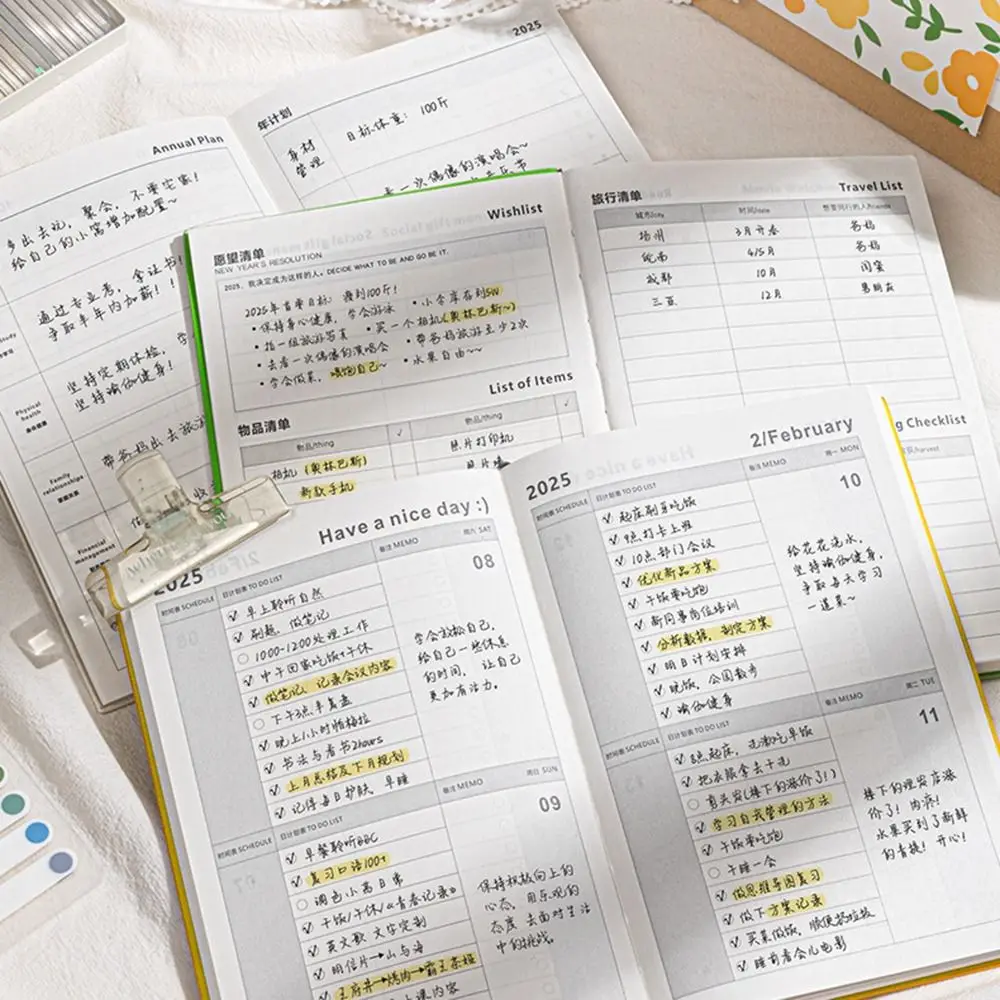 2025
年计划
身材
管理
目标体重：100斤
去一次偶像的演唱会~
Annual Plan
多出去玩，聚会，不要宅家！
给自己的小窝增加配置~
通过专业考，拿证书！
争取半年内加薪！！
坚持定期体检，学
坚持瑜伽健身！
Physical
health
身体健康
Family
relationships
家庭关系
Financial
management
带爸妈出去旅游
Wishlist
愿望清单
NEW YEAR'S RESOLUTION
2025，我决定成为这样的人。DECIDE WHAT TO BE AND GO BE IT.
2025年首要目标：瘦到100斤！
• 保持身心健康，学会游泳 • 小金库存到5W
• 拍一组旅游写真 • 买一个相机(奥林巴斯~)
• 去看一次偶像的演唱会 • 带爸妈旅游至少2次
• 学会做菜，喂饱自己~ • 水果自由~~
List of Items
物品清单
物品/thing ✓ 物品/thing ✓
相机(奥林巴斯) 照片打印机
新款手机 照片墙
旅行清单
Travel List
城市/city 时间/date 想要同行的人/friends
扬州 3月开春 爸妈
皖南 4/5月 爸妈
成都 10月 闺蜜
三亚 12月 男朋友
g Checklist
/harvest
Have a nice day :)
2025
时间表 SCHEDULE 日计划表 TO DO LIST 备注 MEMO 周六 SAT
08
早上聆听自然
刷题，做笔记
1000-1200处理工作
中午回家吃饭+午休
做笔记、记录会议内容
下午3点半复盘
晚上1小时帕梅拉
书法与看书2hours
上月总结及下月规划
记得每日护肤，早睡
学会放松自己，
给自己一些休息
的时间，让自己
更加有活力。
时间表 SCHEDULE 日计划表 TO DO LIST 备注 MEMO 周日 SUN
09
早餐聆听BBC
复习口语100+
调色小高日常
干饭/午休/《青春记录》
英文歌 文字定制
明信片→山与海
王府井→烤肉→霸王茶姬
保持积极向上的
心态，用乐观的
态度去面对生活
中的挑战。
2025
2/February
时间表 SCHEDULE 日计划表 TO DO LIST 备注 MEMO 周一 MON
10
起床刷牙吃饭
9点打卡上班
10点部门会议
优化新品方案
干饭要吃饱
新同事岗位培训
分析数据，制定方案
明日计划安排
晚饭，公园散步
瑜伽健身
给花花浇水，
坚持瑜伽健身，
争取每天学习
一道菜~
时间表 SCHEDULE 日计划表 TO DO LIST 备注 MEMO 周二 TUE
11
8点起床，洗漱吃早饭
把衣服拿去干洗
剪头发(楼下的涨价了！)
学习自我管理的方法
干饭要吃饱
午睡一会
做思维导图复习
做下方案记录
买菜做饭，顺便扔垃圾
睡前看会儿电影
楼下的理发店涨
价了！肉疼！
水果买到了新鲜
的青提！开心！